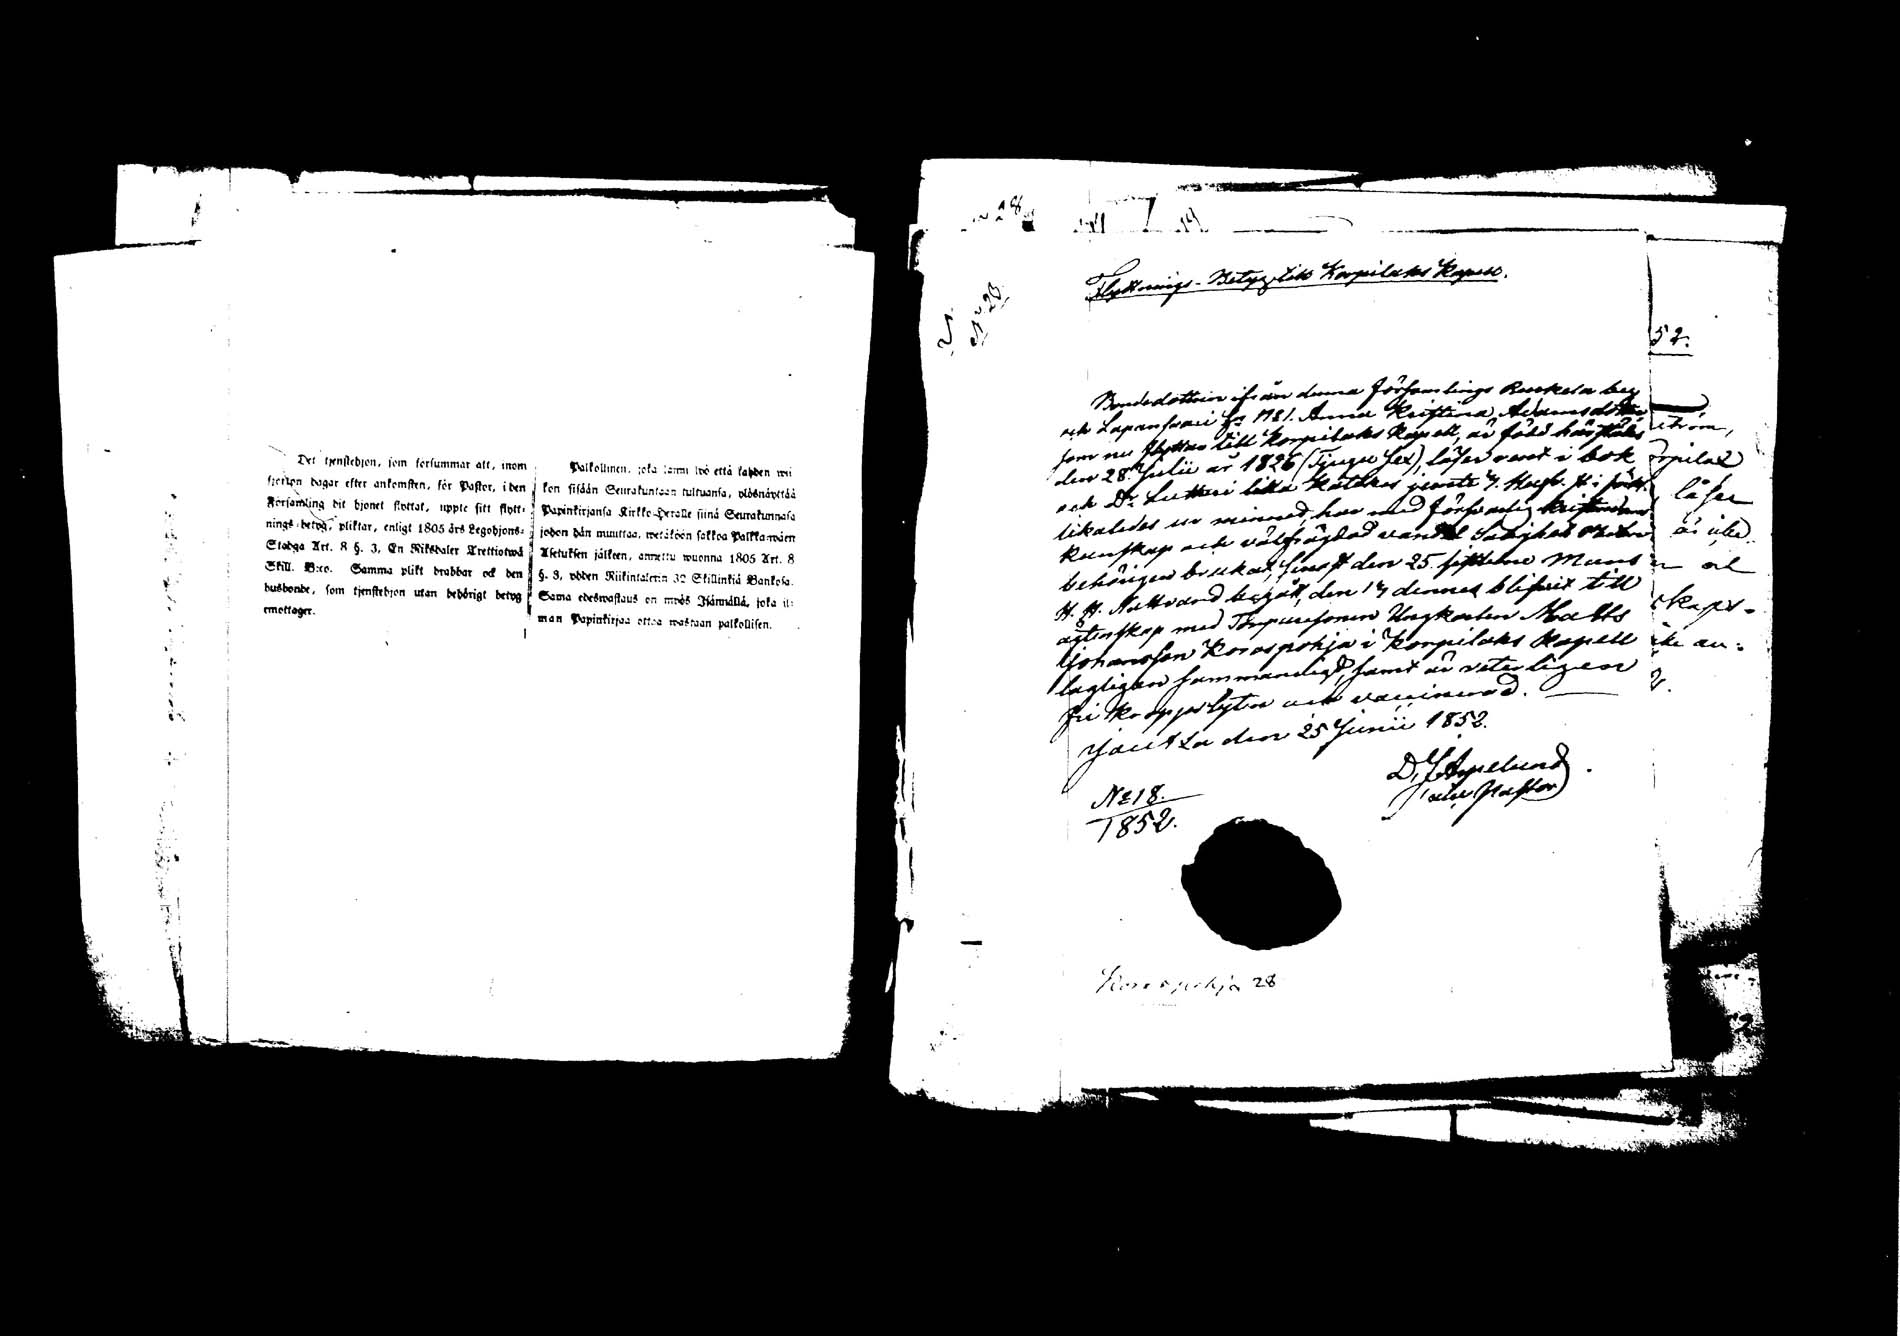 Det tjenstehjon, som försummar att, inom
fjorton dagar efter ankomsten, för Pastor, i den
Församling dit hjonet flyttat, uppte sitt flytt-
nings-betyg, pliktar, enligt 1805 års Legohjons-
Stadga Art. 8 §. 3, En Riksdaler Trettiotwå
Skill. B:co. Samma plikt drabbar ock den
husbonde, som tjenstehjon utan behörigt betyg
emottager.
Palkollinen, joka laimi lyö että kahden wii
kon sisään Seurakuntaan tultuansa, ylösnäyttää
Papinkirjansa Kirkko-Herralle siinä Seurakunnasa
johon hän muuttaa, wetäköön sakkoa Palkkawäen
Asetuksen jälkeen, annettu wuonna 1805 Art. 8
§. 3, yhden Riikintalerin 32 Skillinkiä Bankosa.
Sama edeswastaus on myös Isännällä, joka il-
man Papinkirjaa ottaa wastaan palkollisen.
28
N 28
Flyttnings-Betyg till Korpilaks Kapell.
Bondedottren ifrån denna församlings Ruskela by
och Lapinsaari No 1781. Anna Kristina Adamsdotter
som nu flyttar till Korpilaks Kapell, är född härstädes
den 28 Julii år 1826 (Tjugu sex), läser rent i bok
och Dr Lutheri lilla Katekes jemte
likaledes ur minnet, har med försvarlig kristendoms
kunskap och välfrägdad vandel Salighets Medlen
behörigen brukat, senast den 25 sistledne Mars
H. H. Nattvard begått, den 14 dennes blifvit till
ägtenskap med Torparesonen Ungkarlen Matts
Johansson Korospohja i Korpilaks Kapell
lagligen sammanvigd, samt är veterligen
fri kroppslyten och vaccinerad.
Jäutsa den 25 Junii 1852.
pastor
No 18.
1852.
Korospohja 28
52.
ström,
orpilax
läser
är
och
skaps-